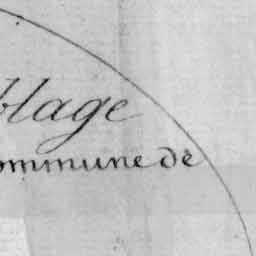 blage
ommune de